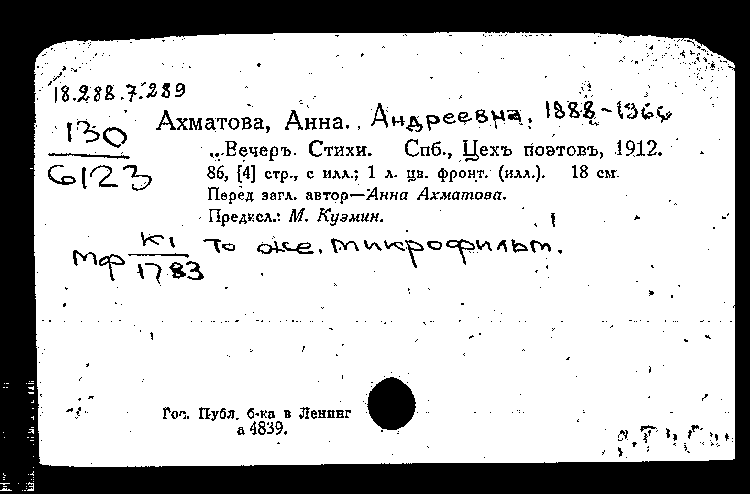 18.288.7.289
130
6123
Ахматова, Анна. Андреевна, 1888-1966
„Вечеръ. Стихи. Спб., Цехъ поэтовъ, 1912.
86, [4] стр., с илл.; 1 л. цв. фронт. (илл.). 18 см.
Перед загл. автор—Анна Ахматова.
Предисл.: М. Кузмин.
Мф К1/1783 То же. микрофильм.
Гос. Публ. б-ка в Ленинг
а 4839.